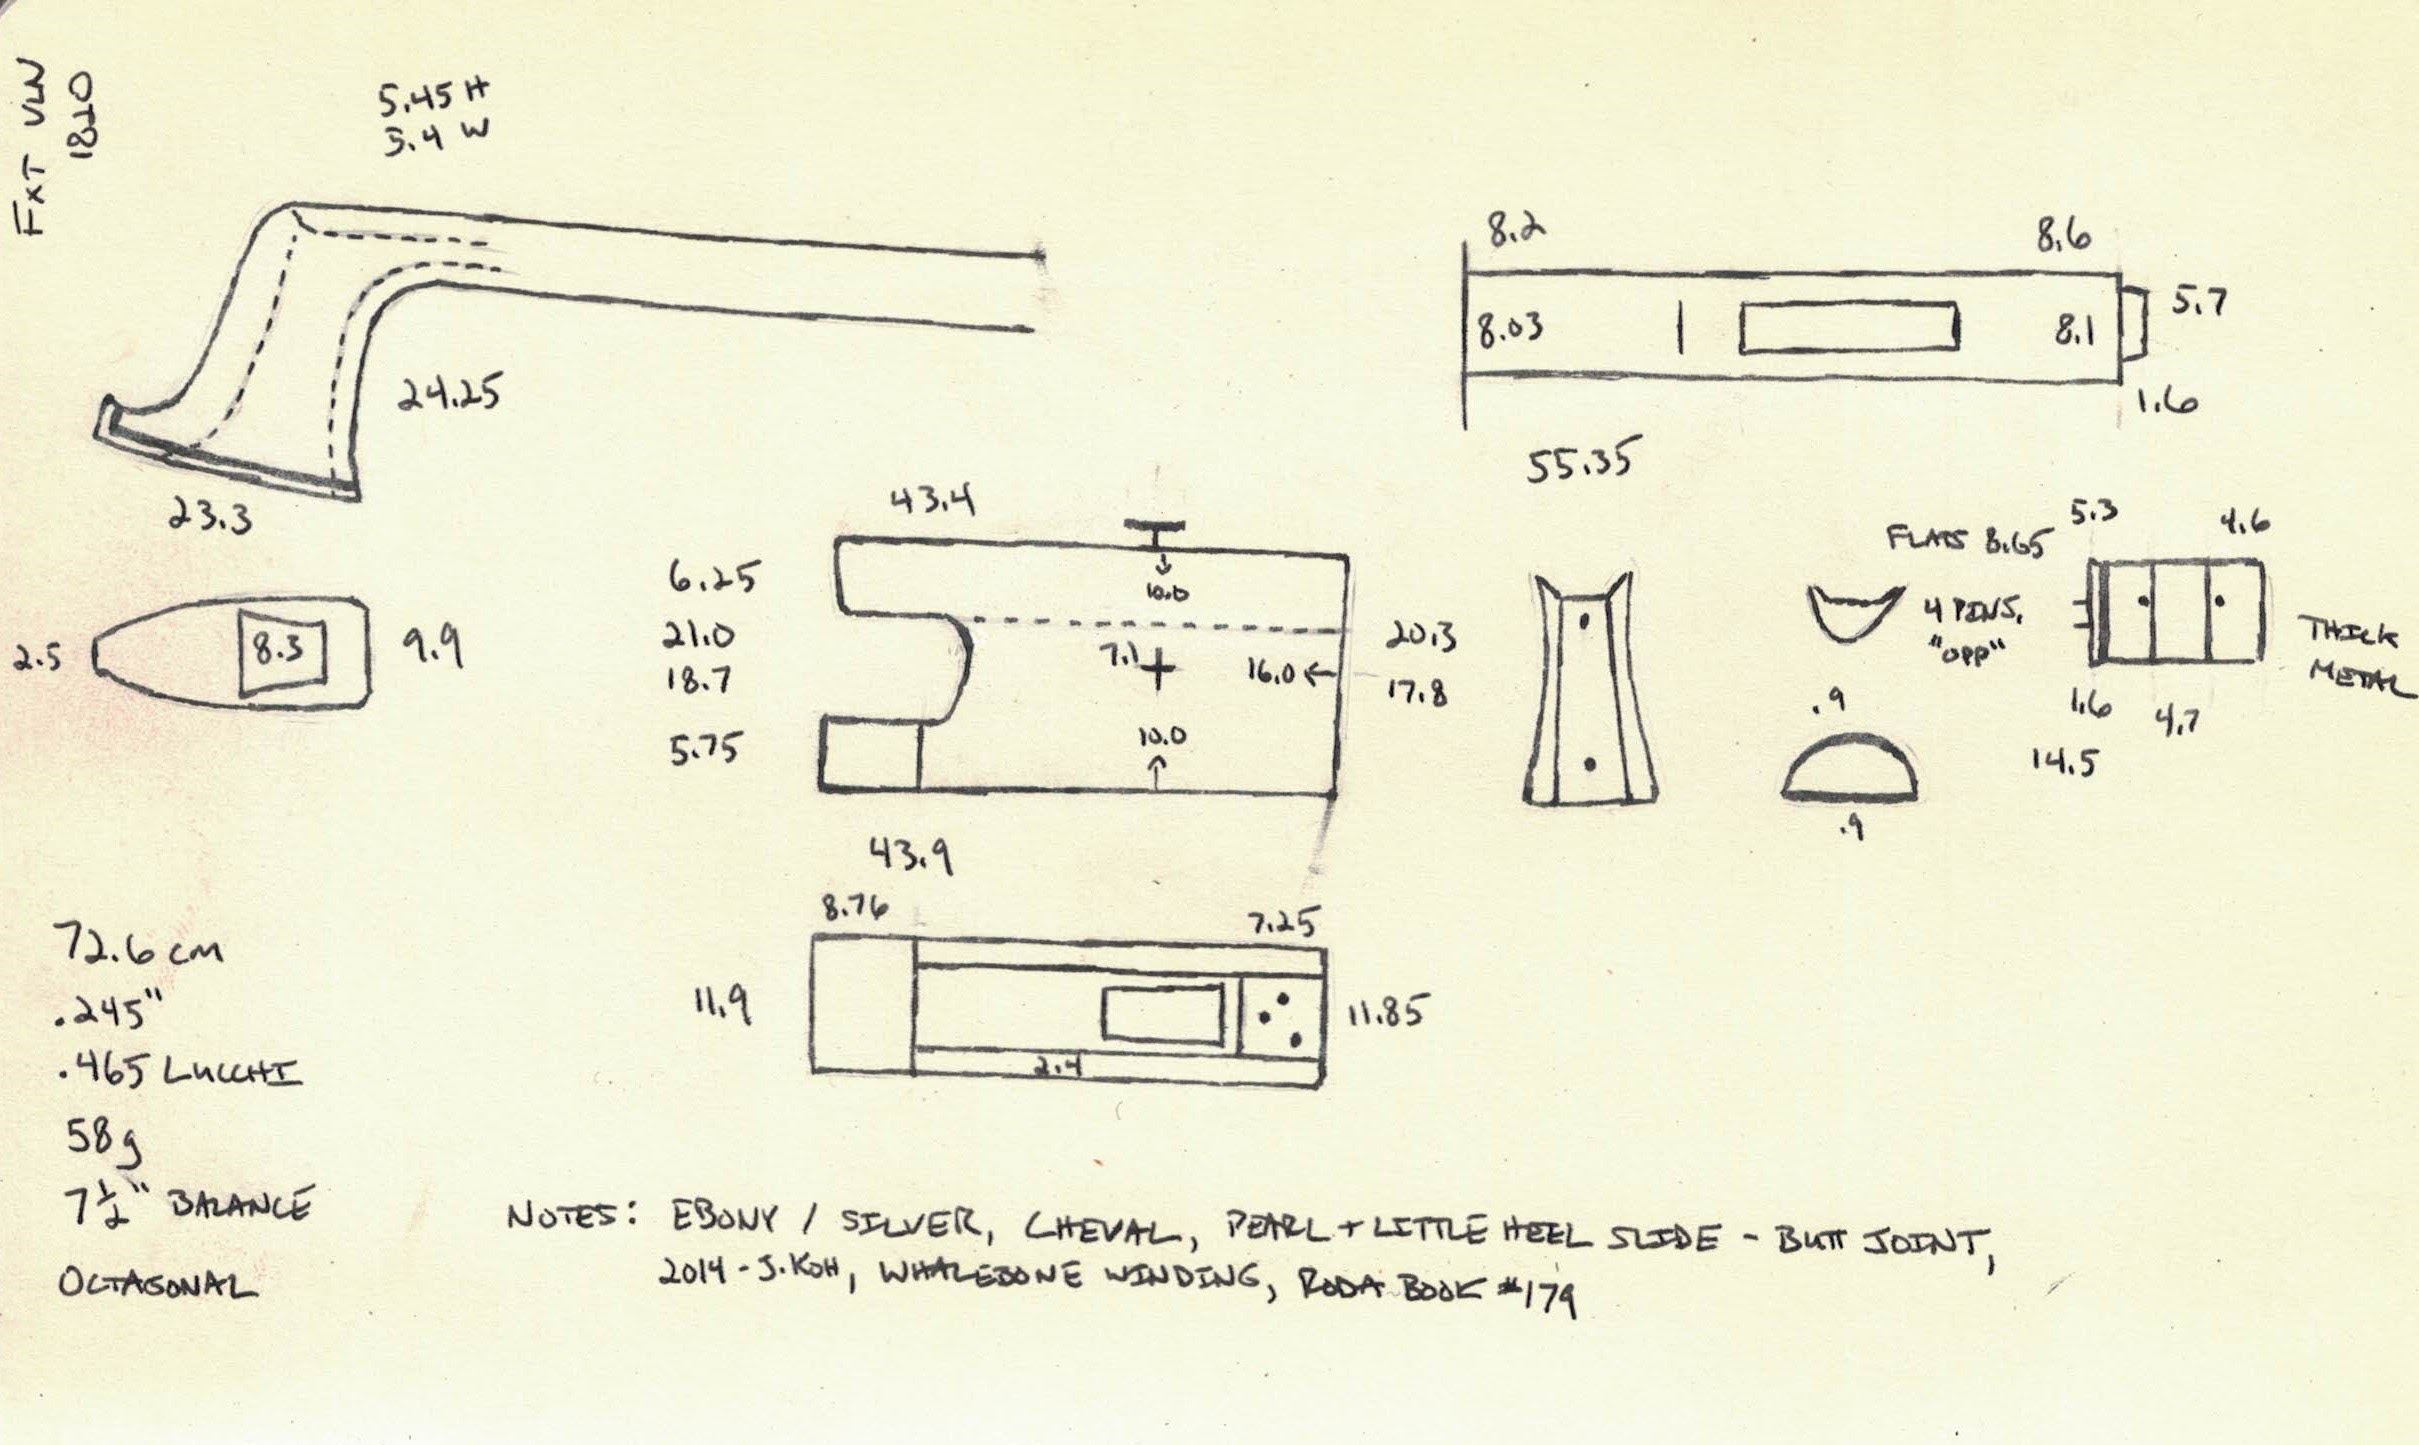 FXT VLN
1820
5.45 H
5.4 W
24.25
23.3
2.5
8.3
9.9
8.2
8.6
8.03
8.1
5.7
1.6
55.35
43.4
6.25
21.0
18.7
5.75
10.0
7.1
16.0
10.0
20.3
17.8
43.9
FLATS 8.65
4 PINS,
"OPP"
.9
.9
5.3
4.6
THICK
METAL
1.6
4.7
14.5
8.76
7.25
11.9
11.85
2.4
72.6 cm
.245"
.465 LUCCHI
58g
7½" BALANCE
OCTAGONAL
NOTES: EBONY / SILVER, CHEVAL, PEARL + LITTLE HEEL SLIDE - BUTT JOINT,
2014 - J. KOH, WHALEBONE WINDING, RODA BOOK #179